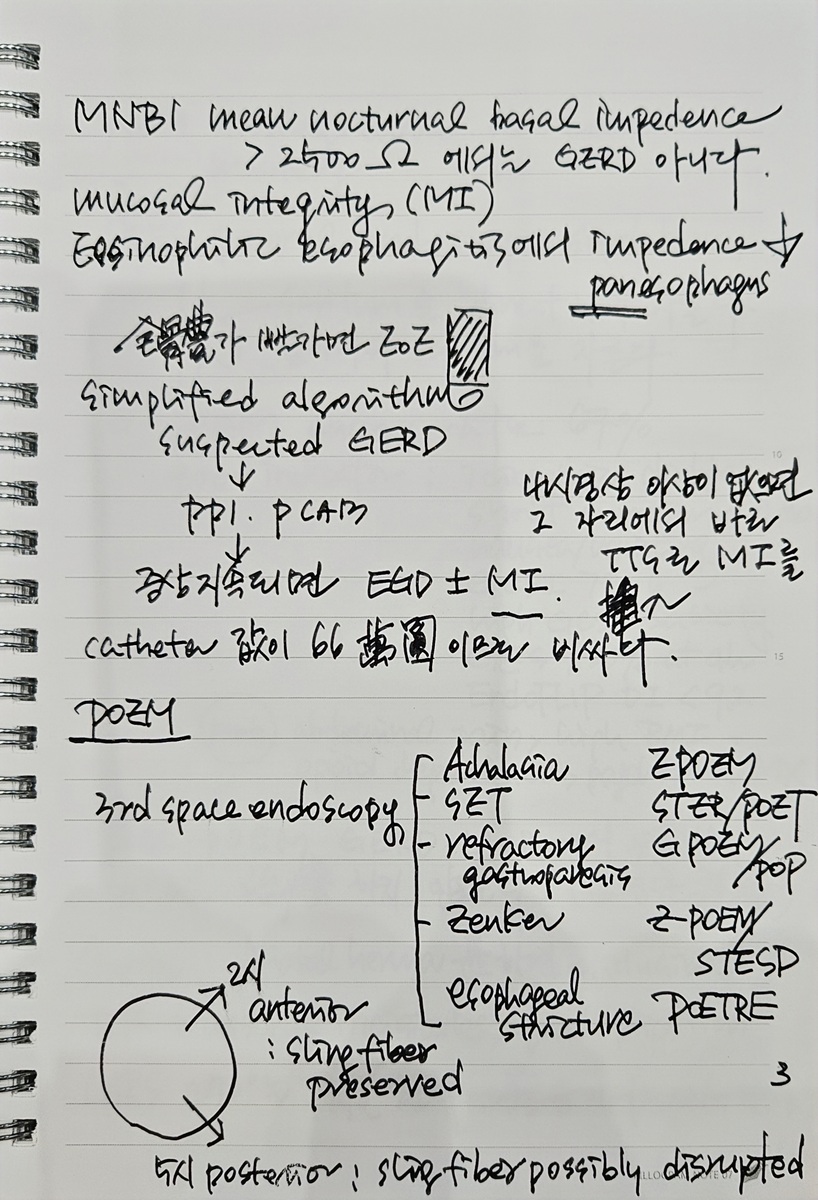 MNBI mean nocturnal basal impedence
> 2500 Ω 에서는 GERD 아니다.
mucosal integrity (MI)
Eosinophilic esophagitis에서 impedence ↓
panesophagus
가 빨가면 EoE
simplified algorithm
suspected GERD
↓
PPI. PCAB
↓
증상지속되면 EGD ± MI.
내시경상 이상이 없으면
그 자리에서 바로
TTS로 MI를
挿入
catheter 값이 66 萬圓 이므로 비싸다.
POEM
3rd space endoscopy
Achalasia EPOEM
SET STER/POET
refractory gastroparesis GPOEM/POP
Zenker Z-POEM/STESD
esophageal stricture POETRE
2시
anterior
: sling fiber
preserved
3
5시 posterior : sling fiber possibly disrupted